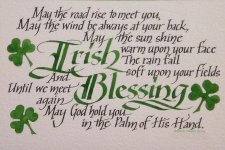 May the road rise to meet you,
May the wind be always at your back,
May the sun shine
warm upon your face
Irish
The rain fall
And
soft upon your fields
Until we meet
Blessing
again
May God hold you
in the Palm of His Hand.